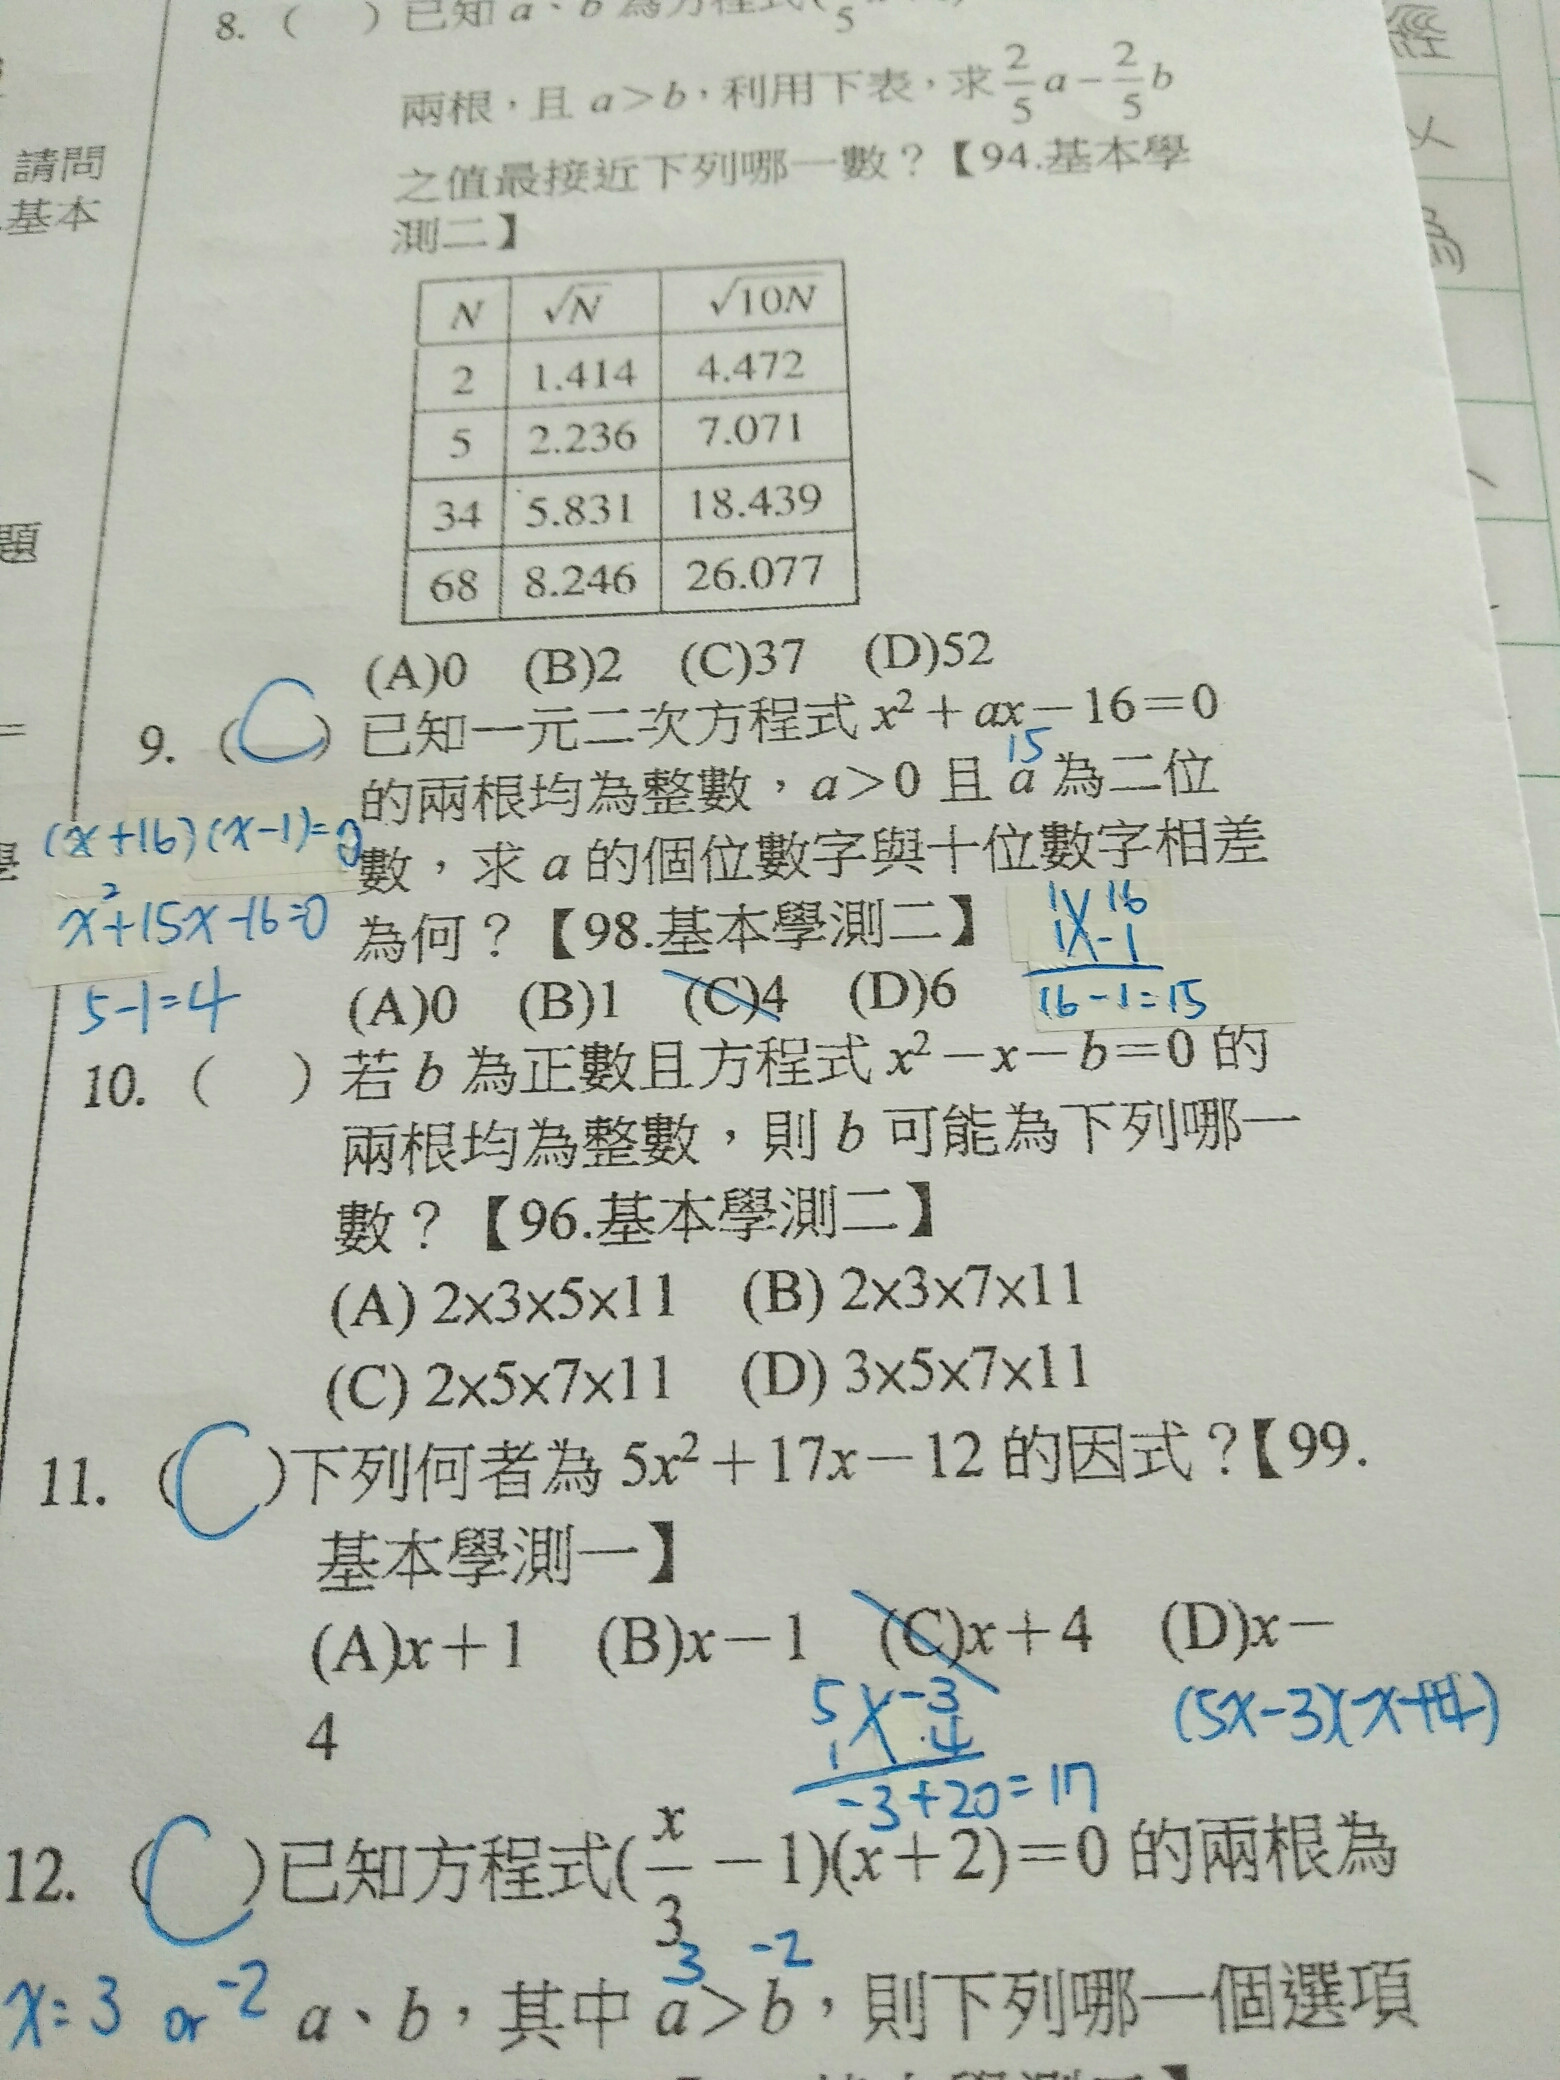 8. ( ) 已知 a、b 為方程式(
5
兩根，且 a＞b，利用下表，求 2/5 a－2/5 b
之值最接近下列哪一數？【94.基本學
測二】
N √N √10N
2 1.414 4.472
5 2.236 7.071
34 5.831 18.439
68 8.246 26.077
(A)0 (B)2 (C)37 (D)52
9. (C) 已知一元二次方程式 x²＋ax－16＝0
15
的兩根均為整數，a＞0 且 a 為二位
(x+16)(x-1)=0
數，求 a 的個位數字與十位數字相差
x²+15x-16=0
為何？【98.基本學測二】
1 16
1 -1
16-1=15
5-1=4
(A)0 (B)1 (C)4 (D)6
10. ( ) 若 b 為正數且方程式 x²－x－b＝0 的
兩根均為整數，則 b 可能為下列哪一
數？【96.基本學測二】
(A) 2×3×5×11 (B) 2×3×7×11
(C) 2×5×7×11 (D) 3×5×7×11
11. (C)下列何者為 5x²＋17x－12 的因式？【99.
基本學測一】
(A)x＋1 (B)x－1 (C)x＋4 (D)x－
4
5 -3
1 4
-3+20=17
(5x-3)(x+4)
12. (C)已知方程式(x/3－1)(x＋2)＝0 的兩根為
3 -2
x=3 or -2
a、b，其中 a＞b，則下列哪一個選項
請問
基本
題
經
為